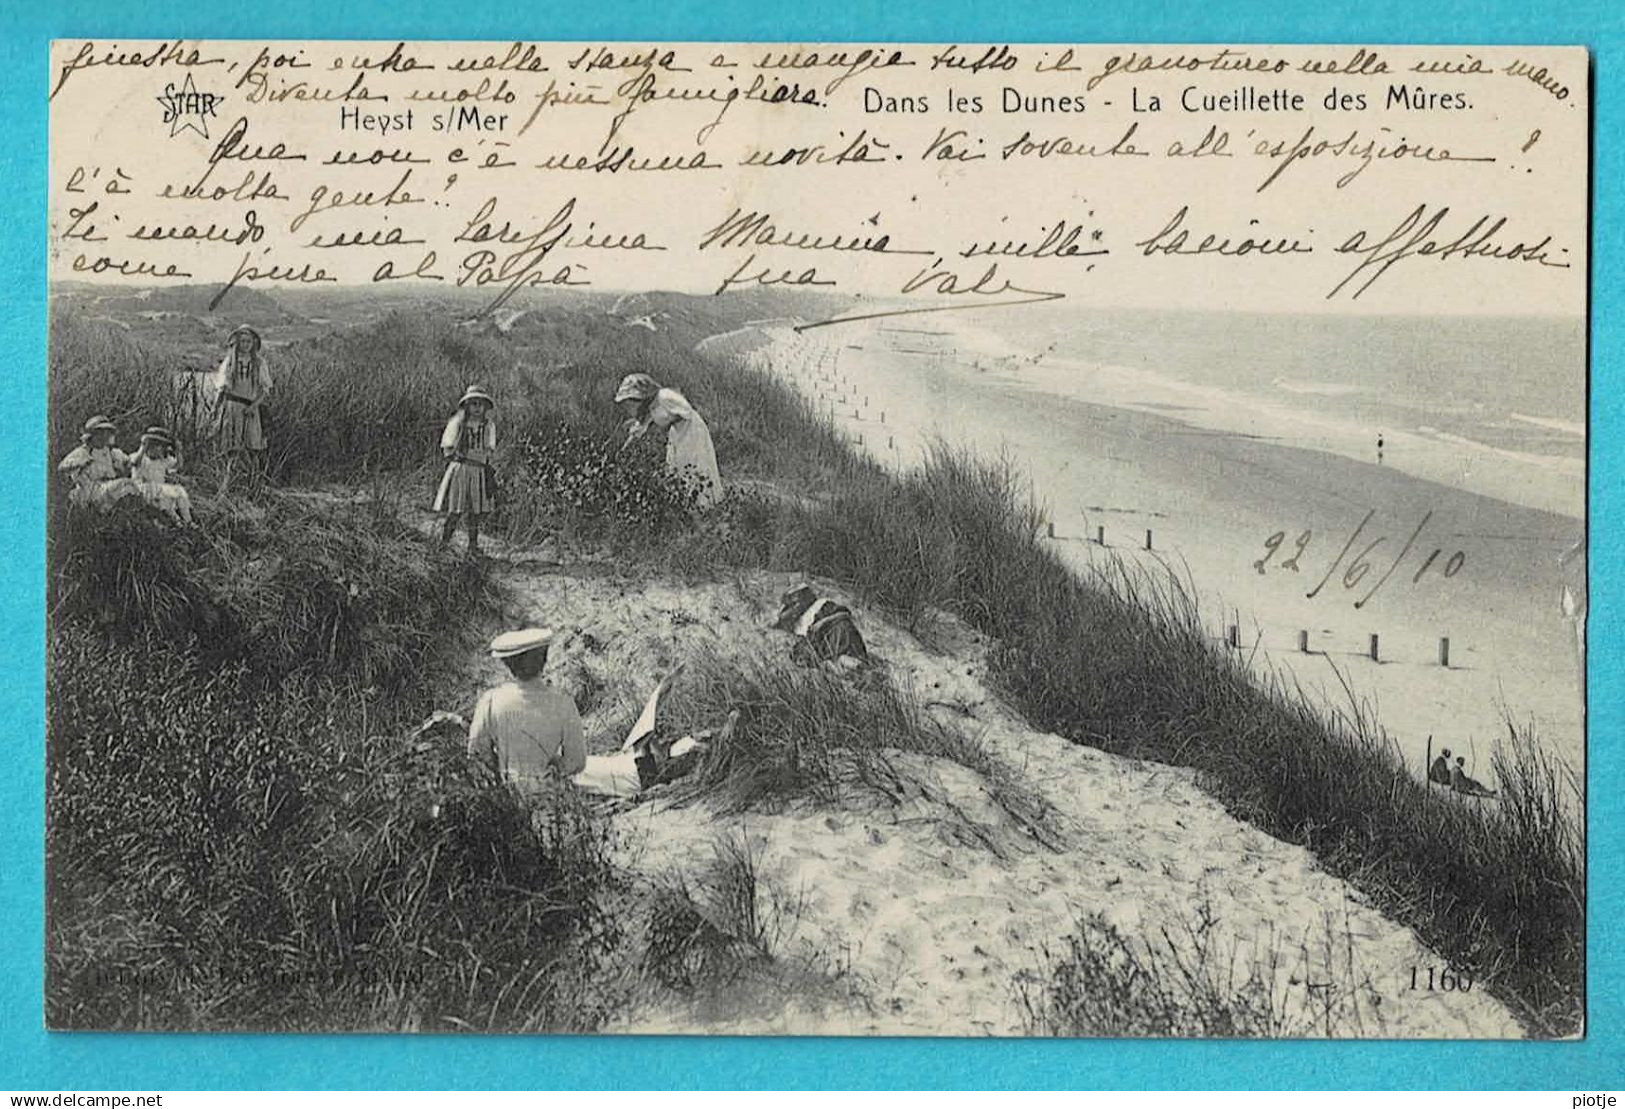 finestra, poi entra nella stanza e mangia tutto il granoturco nella mia mano.
Diventa molto più famigliare.
STAR
Heyst s/Mer
Dans les Dunes - La Cueillette des Mûres.
Qua non c'è nessuna novità. Vai sovente all'esposizione?
C'è molta gente?
Ti mando, mia carissima Mamma, mille bacioni affettuosi
come pure al Papà tua Vale
22/6/10
1160
delcampe.net
piotje